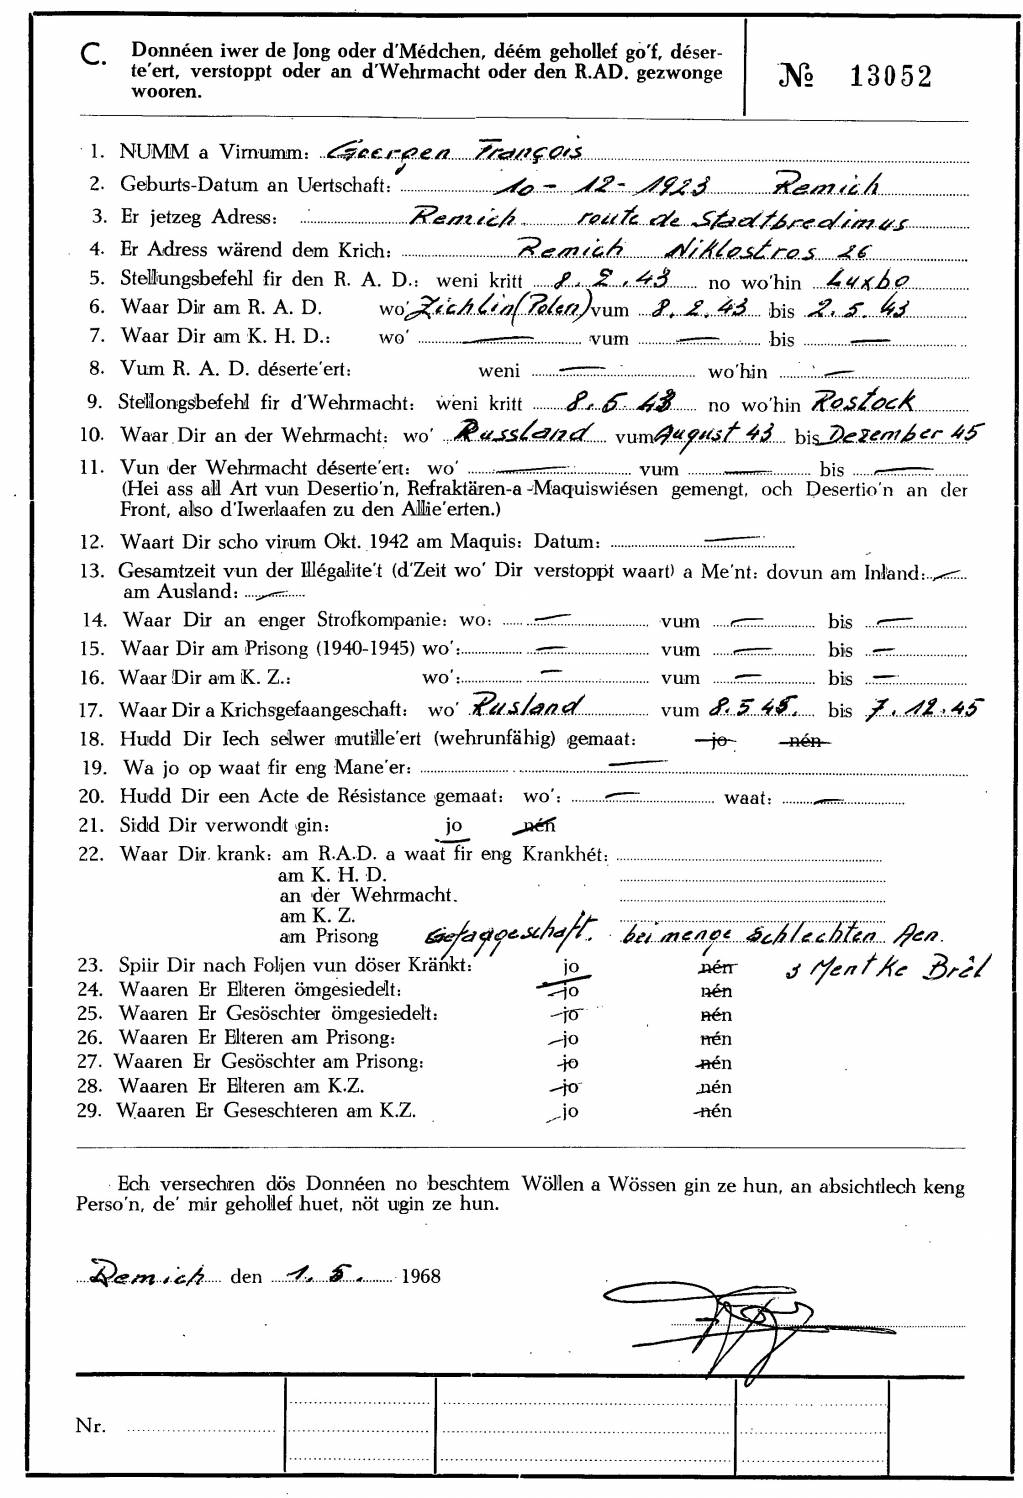 C. Donnéen iwer de Jong oder d'Médchen, déém gehollef go'f, déser-
te'ert, verstoppt oder an d'Wehrmacht oder den R.AD. gezwonge
wooren.
№ 13052
1. NUMM a Virnumm: Goergen François
2. Geburts-Datum an Uertschaft: 10-12-1923 Remich
3. Er jetzeg Adress: Remich route de Stadtbredimus
4. Er Adress wärend dem Krich: Remich Niklostros 26
5. Stellungsbefehl fir den R. A. D.: weni kritt 8.2.43 no wo'hin Luxbg
6. Waar Dir am R. A. D. wo' Zichlin (Polen) vum 8.2.43 bis 2.5.43
7. Waar Dir am K. H. D.: wo' — vum — bis —
8. Vum R. A. D. déserte'ert: weni — wo'hin —
9. Stellongsbefehl fir d'Wehrmacht: weni kritt 8.5.43 no wo'hin Rostock
10. Waar Dir an der Wehrmacht: wo' Russland vum August 43 bis Dezember 45
11. Vun der Wehrmacht déserte'ert: wo' — vum — bis —
(Hei ass all Art vun Desertio'n, Refraktären-a -Maquiswiésen gemengt, och Desertio'n an der
Front, also d'Iwerlaafen zu den Allie'erten.)
12. Waart Dir scho virum Okt. 1942 am Maquis: Datum: —
13. Gesamtzeit vun der Illégalite't (d'Zeit wo' Dir verstoppt waart) a Me'nt: dovun am Inland: —
am Ausland: —
14. Waar Dir an enger Strofkompanie: wo: — vum — bis —
15. Waar Dir am Prisong (1940-1945) wo': — vum — bis —
16. Waar Dir am K. Z.: wo': — vum — bis —
17. Waar Dir a Krichsgefaangeschaft: wo' Rusland vum 8.5 45. bis 7.12.45
18. Hudd Dir Iech selwer mutille'ert (wehrunfähig) gemaat: jo nén
19. Wa jo op waat fir eng Mane'er: —
20. Hudd Dir een Acte de Résistance gemaat: wo': — waat: —
21. Sidd Dir verwondt gin: jo nén
22. Waar Dir krank: am R.A.D. a waat fir eng Krankhét:
am K. H. D.
an der Wehrmacht.
am K. Z.
am Prisong Gefaggeschaft. bei menge schlechten Aen.
23. Spiir Dir nach Foljen vun döser Kränkt: jo nén 3 Brêl
24. Waaren Er Elteren ömgesiedelt: jo nén
25. Waaren Er Gesöschter ömgesiedelt: jo nén
26. Waaren Er Elteren am Prisong: jo nén
27. Waaren Er Gesöschter am Prisong: jo nén
28. Waaren Er Elteren am K.Z. jo nén
29. Waaren Er Geseschteren am K.Z. jo nén
Ech versechren dös Donnéen no beschtem Wöllen a Wössen gin ze hun, an absichtlech keng
Perso'n, de' mir gehollef huet, nöt ugin ze hun.
Remich den 1. 5. 1968
Nr.